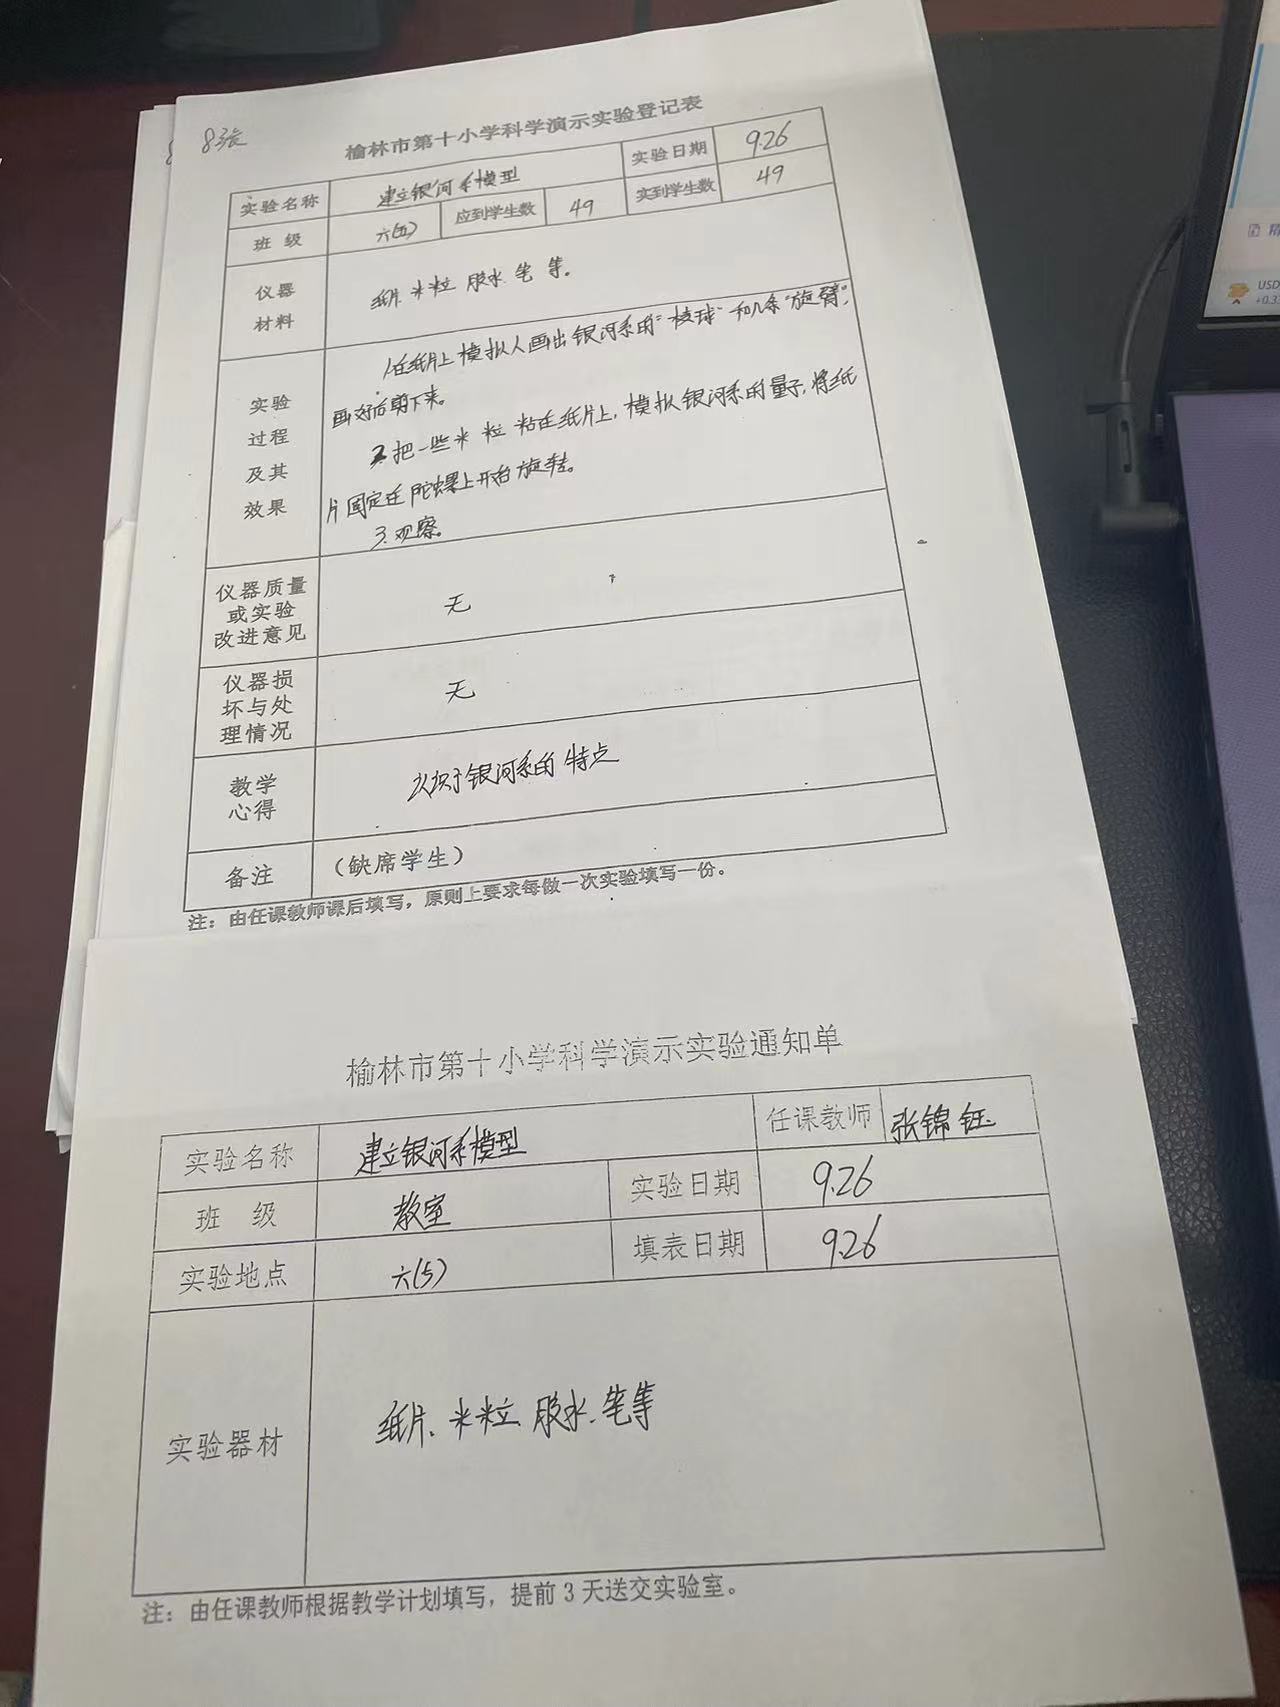 8张
榆林市第十小学科学演示实验登记表
实验名称 建立银河系模型 实验日期 9.26
班 级 六(五) 应到学生数 49 实到学生数 49
仪器
材料
纸片 米粒 胶水 笔 等。
实验
过程
及其
效果
1.在纸片上模拟人画出银河系的“核球”和几条“旋臂”,
画好后剪下来。
2.把一些米粒 粘在纸片上,模拟银河系的量子,将纸
片固定在陀螺上开始旋转。
3.观察。
仪器质量
或实验
改进意见
无
仪器损
坏与处
理情况
无
教学
心得
认识了银河系的特点
备注 (缺席学生)
注:由任课教师课后填写,原则上要求每做一次实验填写一份。
榆林市第十小学科学演示实验通知单
实验名称 建立银河系模型 任课教师 张锦钰
班 级 教室 实验日期 9.26
实验地点 六(5) 填表日期 9.26
实验器材 纸片、米粒、胶水、笔等
注:由任课教师根据教学计划填写,提前3天送交实验室。
USD
+0.3